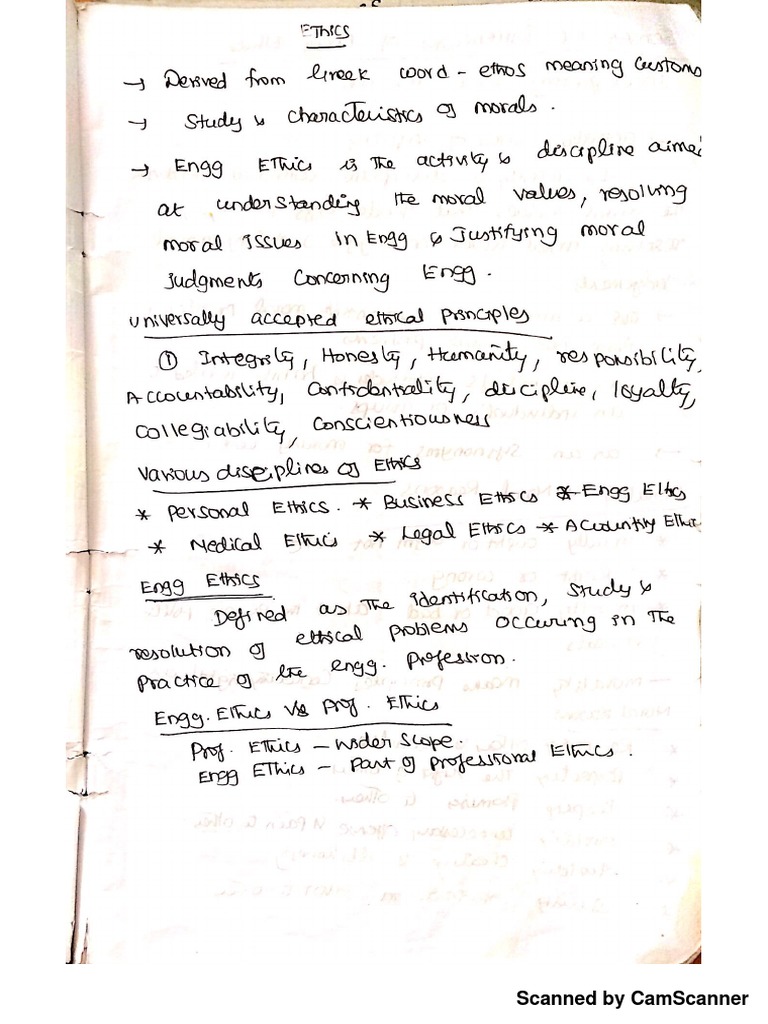 ETHICS
→ Derived from Greek word - ethos meaning Customs
→ Study & characteristics of morals.
→ Engg Ethics is the activity & discipline aime
at understanding the moral values, resolving
moral issues in Engg & Justifying moral
judgments concerning Engg.
Universally accepted ethical principles
① Integrity, Honesty, Humanity, responsibility,
Accountability, Confidentiality, discipline, loyalty,
Collegiability, Conscientiousness
Various disciplines of Ethics
* Personal Ethics. * Business Ethics * Engg Ethics
* Medical Ethics * Legal Ethics * Accounting Ethic
Engg Ethics
Defined as the identification, Study &
resolution of ethical problems occuring in the
Practice of the engg. Profession.
Engg. Ethics Vs Prof. Ethics
Prof. Ethics - wider Scope.
Engg Ethics - Part of professional Ethics.
Scanned by CamScanner